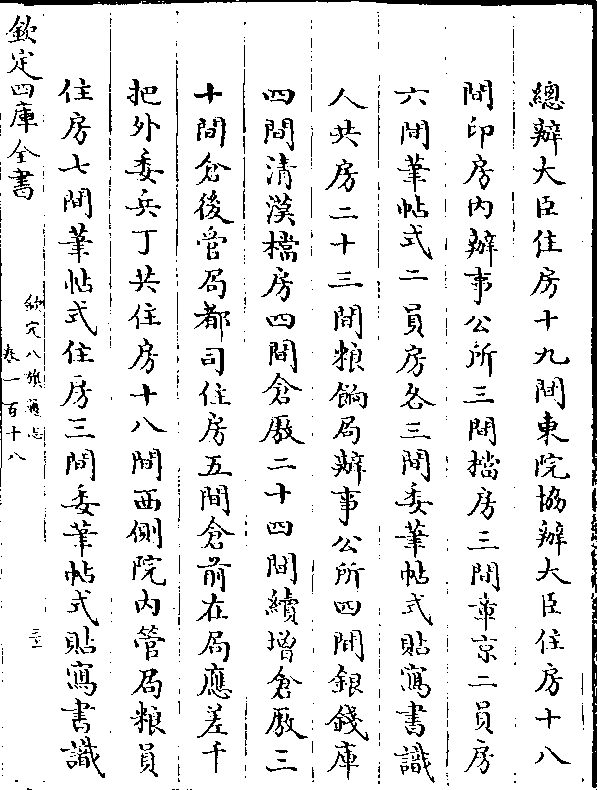 總辦大臣住房十九間東院協辦大臣住房十八
間印房内辦事公所三間檔房三間章京二員房
六間筆帖式二員房各三間委筆帖式貼寫書識
人共房二十三間粮餉局辦事公所四間銀錢庫
四間清漢檔房四間倉厫二十四間續增倉厫三
十間倉後管局都司住房五間倉前在局應差千
把外委兵丁共住房十八間西側院内管局粮員
住房七間筆帖式住房三間委筆帖式貼寫書識
欽定四庫全書
欽定八旗通志
卷一百十八